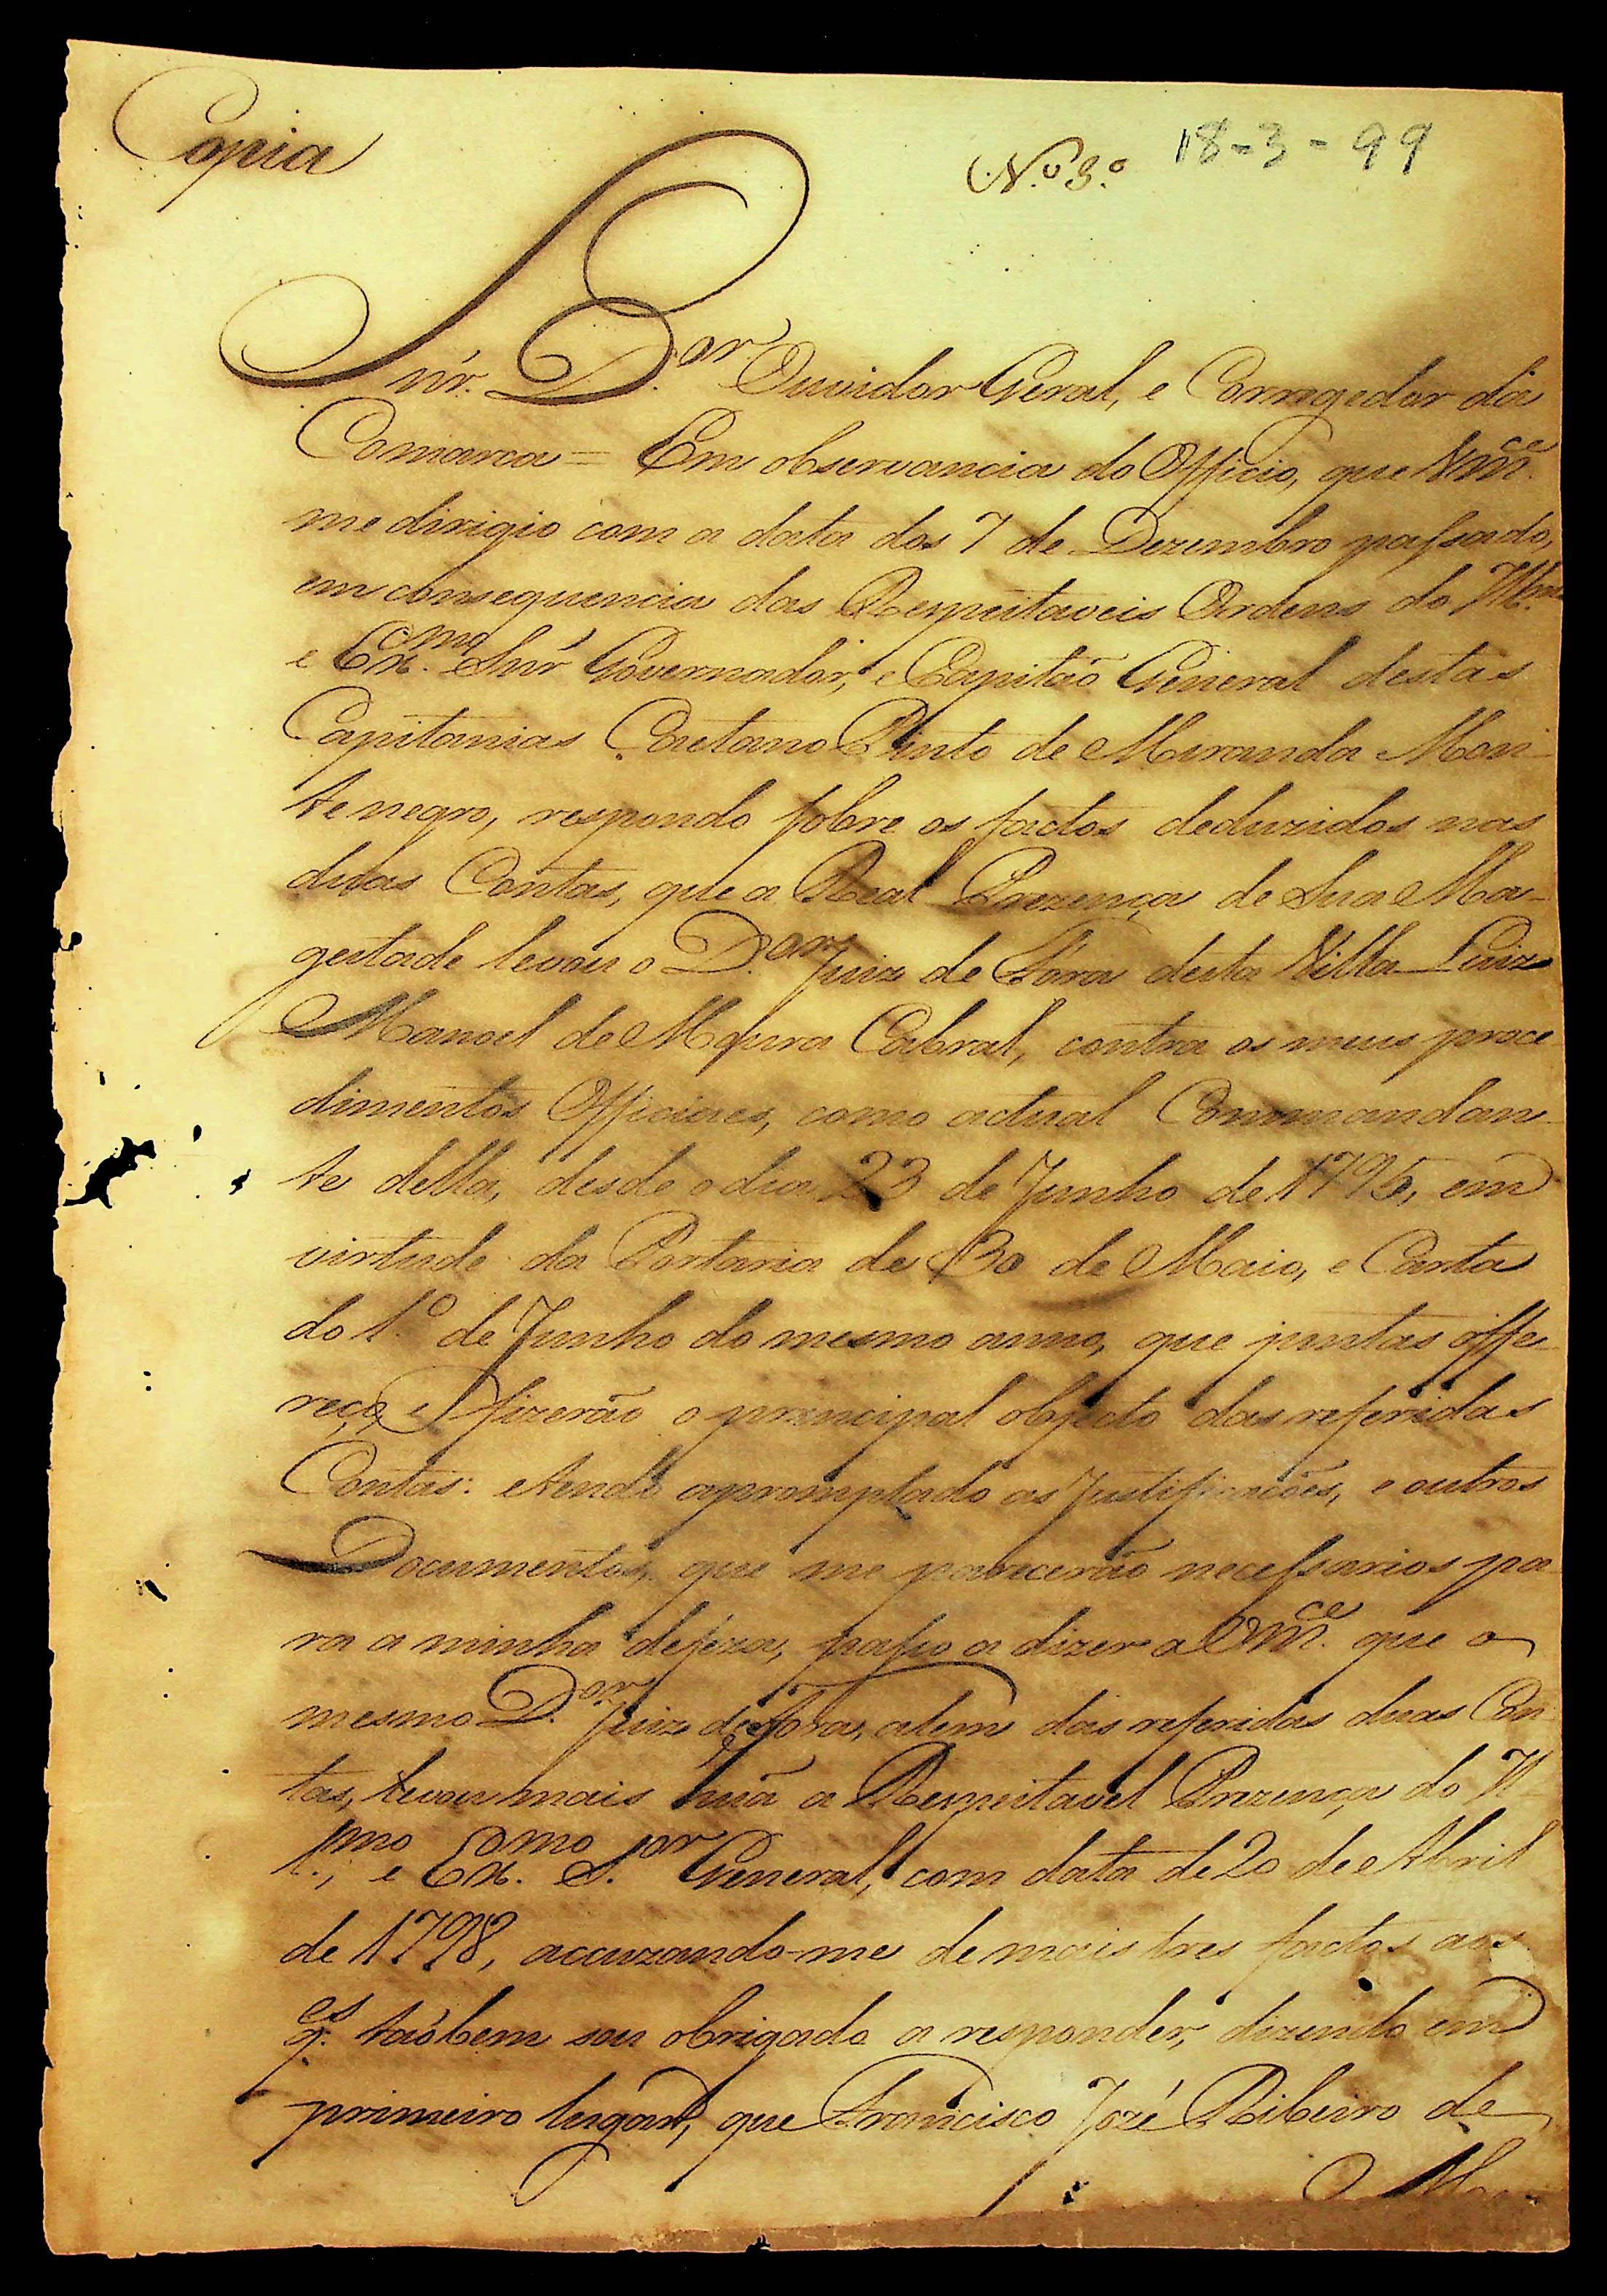 Copia
N.º 3.º 18-3-99
Snr. D.or Ouvidor Geral, e Corregedor da
Comarca = Em observancia do Officio, que Vm.ce
me dirigio com a data dos 7 de Dezembro passado,
em consequencia das Respeitaveis Ordens do Ill.mo
e Ex.mo Snr Governador, e Capitão General destas
Capitanias Caetano Pinto de Miranda Mon-
te negro, respondo sobre os factos deduzidos nas
duas Contas, que a Real Prezença de Sua Ma-
gestade levou o D.or Juiz de Fora desta Villa Luiz
Manoel de Moura Cabral, contra os meus proce-
dimentos Officiaes, como actual Commandan-
te della, desde o dia 23 de Junho de 1795, em
virtude da Portaria de 30 de Maio, e Carta
do 1.º de Junho do mesmo anno, que juntas offe-
reço, e fizerão o principal objecto das referidas
Contas: e tendo apromptado as Justificações, e outros
Documentos, que me parecerão necessarios pa-
ra a minha defeza, passo a dizer a Vm.ce que o
mesmo D.or Juiz de Fora, alem das referidas duas Con-
tas, levou mais huã a Respeitavel Prezença do Il-
l.mo, e Ex.mo S.or General, com data de 20 de Abril
de 1798, accuzando-me de mais tres factos aos
q.es taõbem sou obrigado a responder, dizendo em
primeiro lugar, que Francisco Jozé Ribeiro de